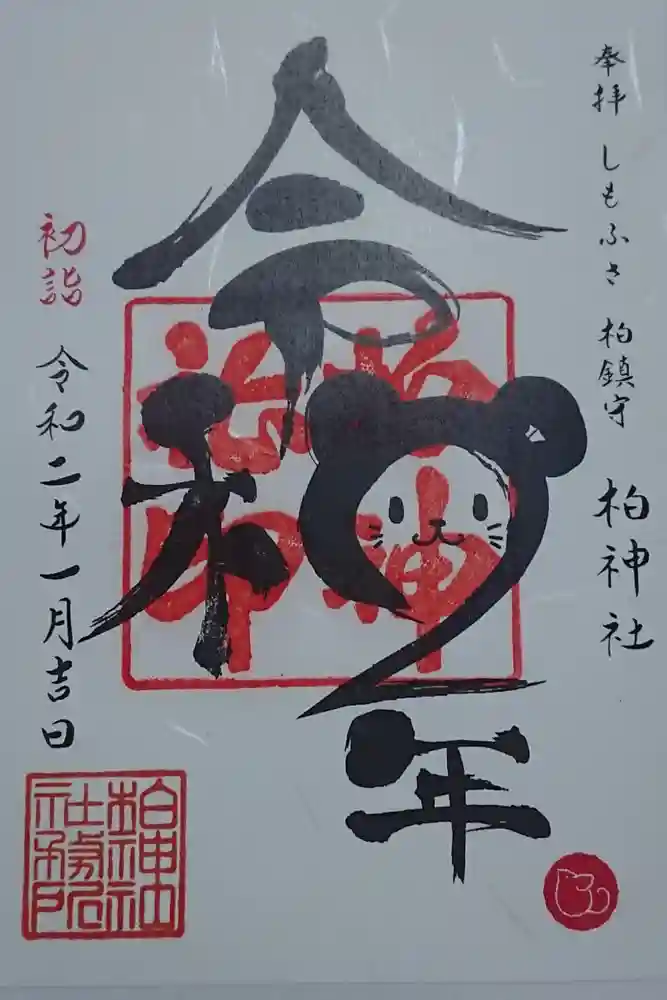 奉拝 しもふさ 柏鎮守 柏神社
令和2年
柏神社印
初詣 令和二年一月吉日
柏神社社務所